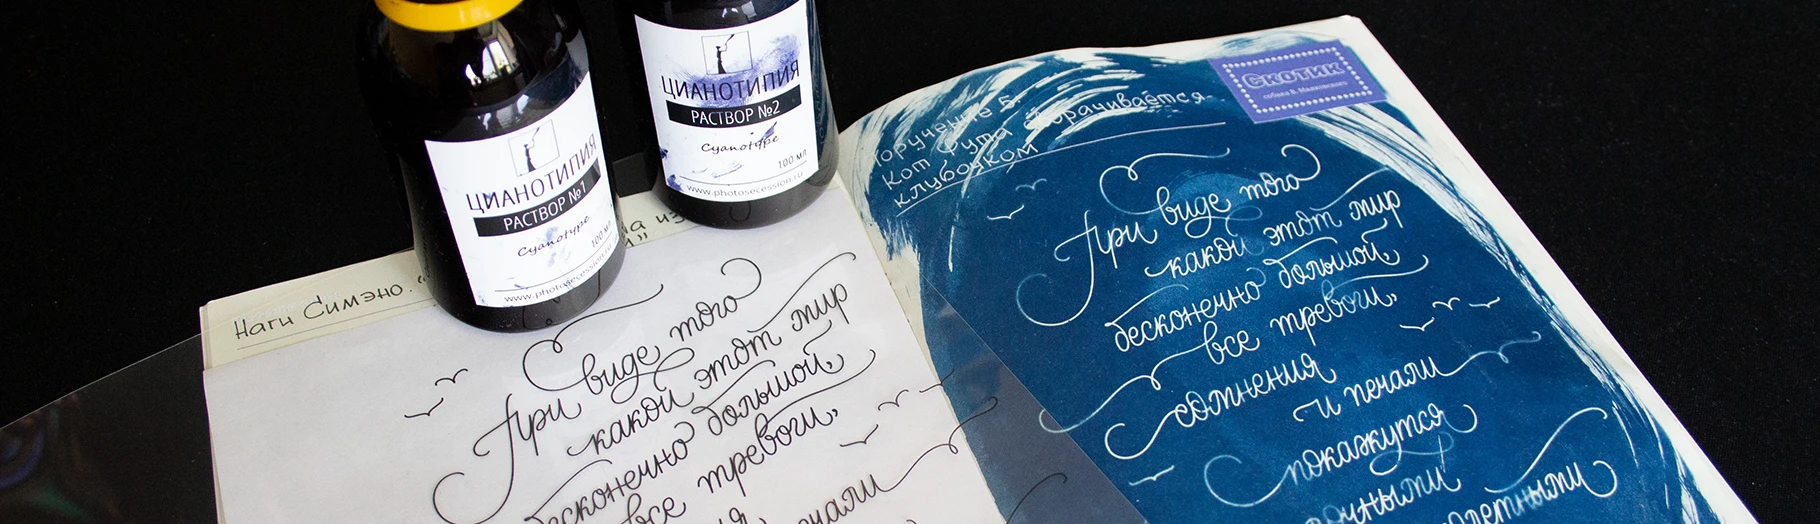 ЦИАНОТИПИЯ
РАСТВОР №1
Cyanotype
100 мл
www.photosecession.ru
ЦИАНОТИПИЯ
РАСТВОР №2
Cyanotype
100 мл
www.photosecession.ru
Наги Симэно. "
При виде того
какой этот мир
бесконечно большой,
все тревоги,
Скотик
собака В. Маяковского
Поручение Б.
Кот Фута сворачивается
клубочком
При виде того
какой этот мир
бесконечно большой,
все тревоги,
сомнения
и печали
покажутся